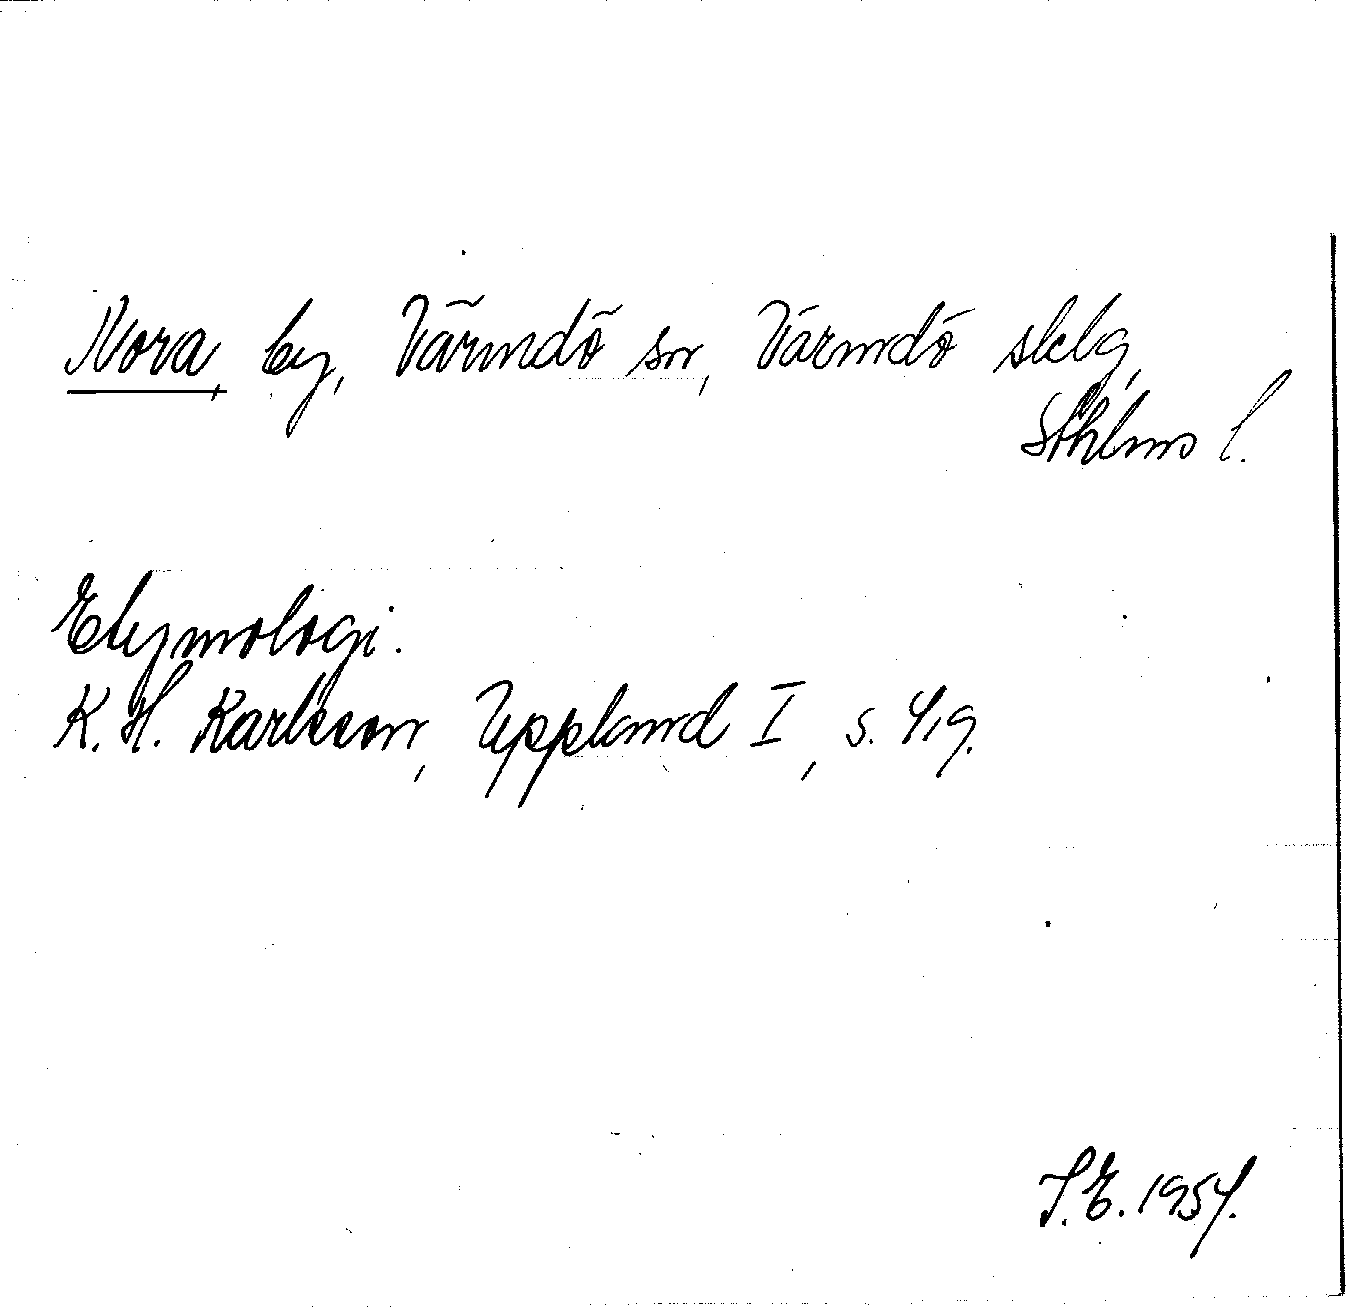 Nora, by, Värmdö sn, Värmdö sklg,
Sthlms l.
Etymologi.
K. H. Karlsson, Uppland I, s. 419.
S.E. 1954.